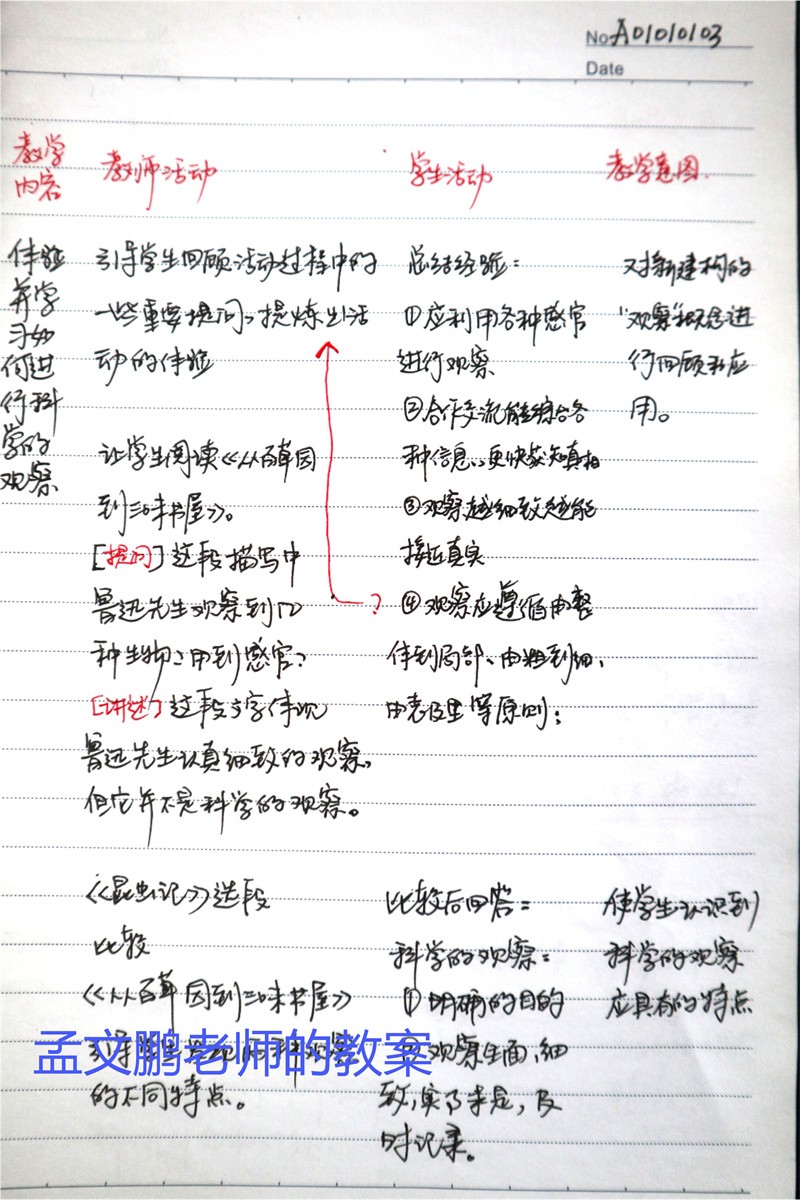 No. A01010103
Date
教学
内容
教师活动
学生活动
教学意图.
体验
并学
习如
何进
行科
学的
观察
引导学生回顾活动过程中的
一些重要提问,提炼出活
动的体验
让学生阅读《从百草园
到三味书屋》。
[提问]这段描写中
鲁迅先生观察到几
种生物?用到感官?
[讲述]这段文字体现
鲁迅先生认真细致的观察,
但它并不是科学的观察。
总结经验:
①应利用各种感官
进行观察
②合作交流能综合各
种信息,更快获知真相
③观察越细致越能
接近真实
? ④观察应遵循由整
体到局部、由粗到细、
由表及里等原则;
对新建构的
“观察”概念进
行回顾和应
用。
《昆虫记》选段
比较
《从百草园到三味书屋》
引导学生
的不同特点。
比较后回答:
科学的观察:
①明确的目的
②观察全面、细
致,实事求是,及
时记录。
使学生认识到
科学的观察
应具有的特点
孟文鹏老师的教案